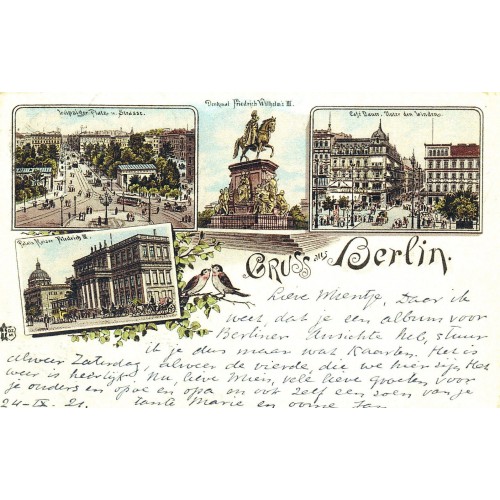 Leipziger Platz u. Strasse.
Denkmal Friedrich Wilhelms III.
Café Bauer. Unter den Linden.
Palais Kaiser Friedrich III.
GRUSS aus Berlin.
Lieve Mientje, Daar ik
weet dat je een album voor
Berliner Ansichte heb, stuur
ik je dus maar wat kaarten. Het is
alweer Zaterdag, alweer de vierde, die we hier zijn. Het
weer is heerlijk. Nu, lieve Mien, vele lieve groeten voor
je ouders en opoe en opa en ook zelf een zoen van je
24-IX-21. tante Marie en oome Jan